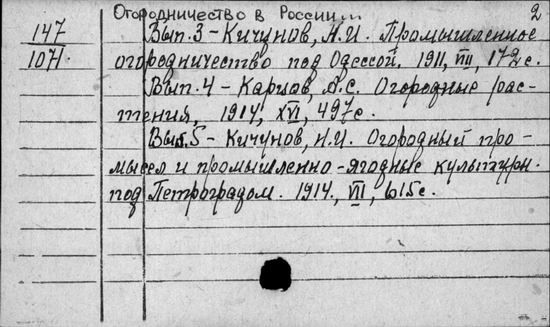 Огородничество в России... 2
147 Вып.3-Кичунов, Н.И. Промышленное
1071 огородничество под Одессой. 1911, VIII, 172с.
Вып.4- Карцов, А.С. Огородные рас-
тения, 1914, XVI, 497с.
Вып.5- Кичунов, Н.И. Огородный про-
мысел и промышленно-ягодные культуры
под Петроградом. 1914, VIII, 615с.